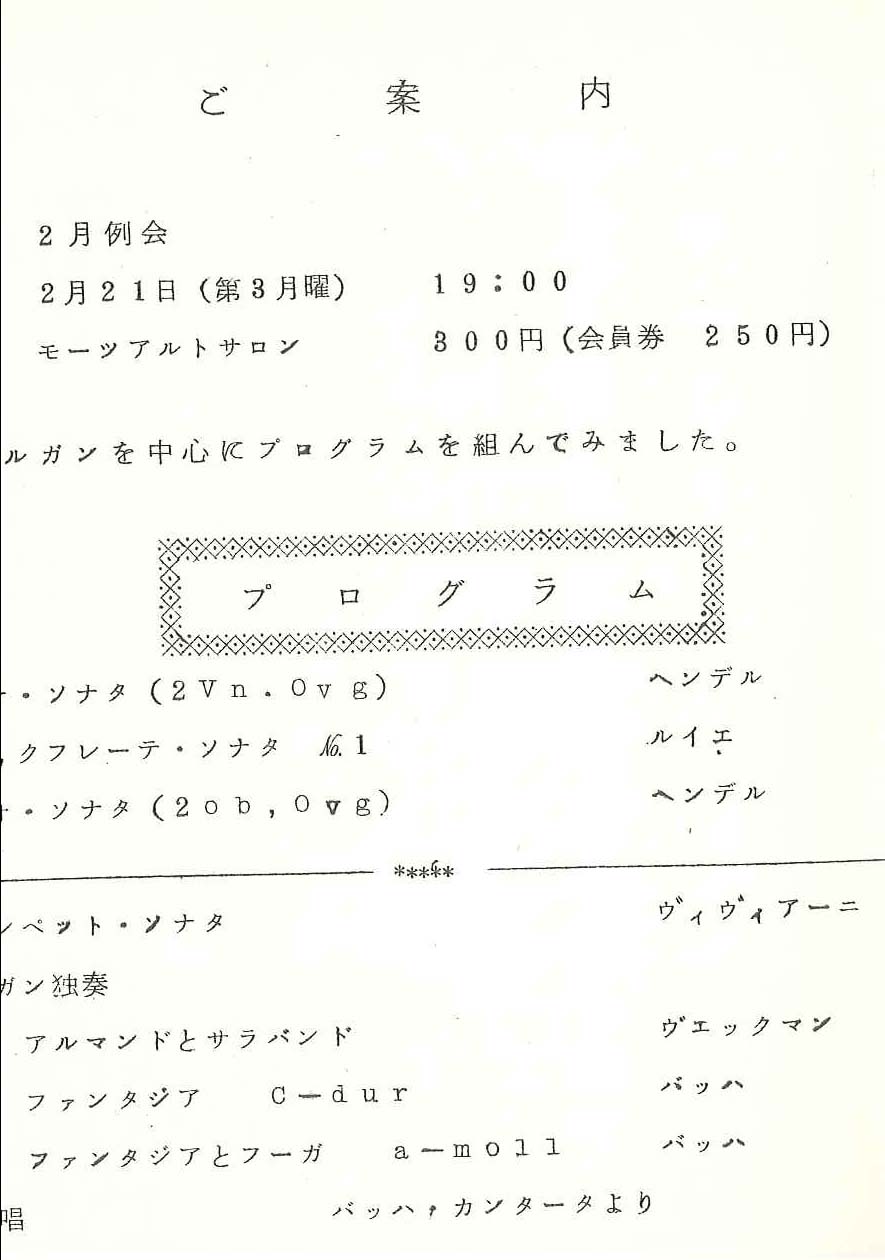 ご案内
2月例会
2月21日(第3月曜) 19:00
モーツアルトサロン 300円(会員券 250円)
ルガンを中心にプログラムを組んでみました。
プログラム
・ソナタ(2Vn.Ovg) ヘンデル
クフレーテ・ソナタ №1 ルイエ
・ソナタ(2ob,Ovg) ヘンデル
ンペット・ソナタ ヴィヴィアーニ
ガン独奏
アルマンドとサラバンド ヴエックマン
ファンタジア C-dur バッハ
ファンタジアとフーガ a-moll バッハ
唱 バッハ,カンタータより